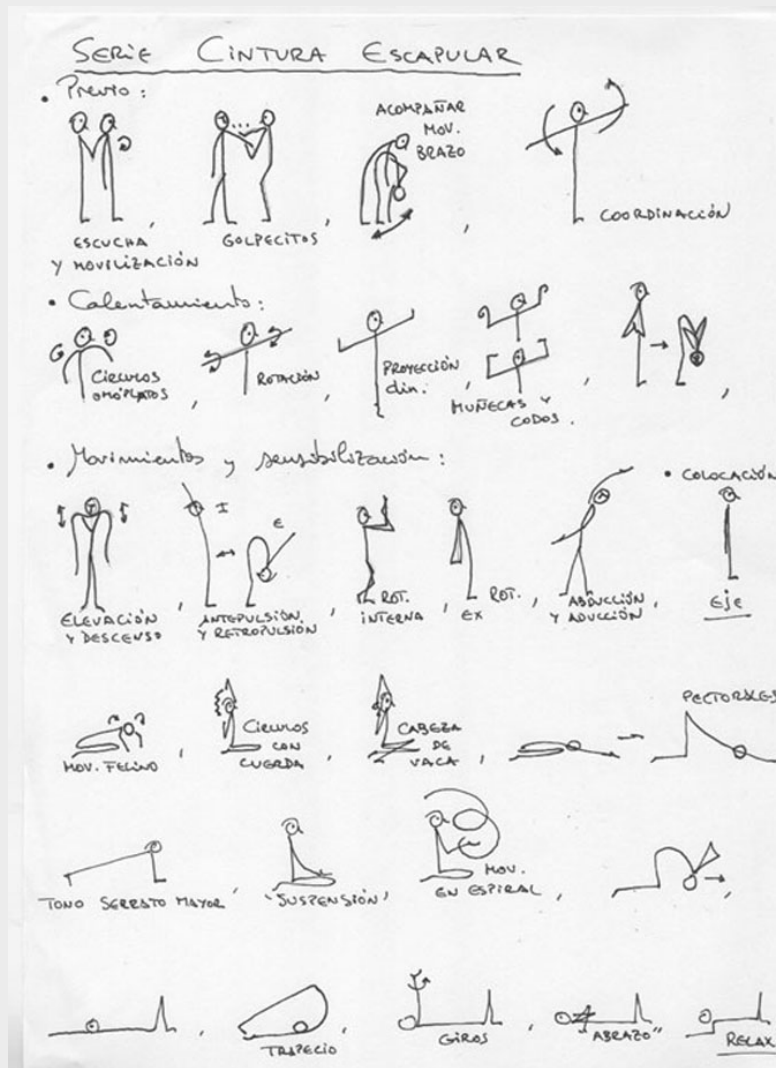 SERIE CINTURA ESCAPULAR
• Previo:
ESCUCHA
Y MOVILIZACIÓN
,
GOLPECITOS
,
ACOMPAÑAR
MOV.
BRAZO
,
COORDINACCIÓN
• Calentamiento:
CÍRCULOS
OMÓPLATOS
,
ROTACIÓN
,
PROYECCIÓN
din.
,
MUÑECAS Y
CODOS.
,
,
• Movimientos y sensibilización:
ELEVACIÓN
Y DESCENSO
,
I
E
ANTEPULSIÓN
Y RETROPULSIÓN
,
ROT.
INTERNA
,
ROT.
EX
,
ABDUCCIÓN
Y ADUCCIÓN
,
• COLOCACIÓN
EJE
MOV. FELINO
,
CÍRCULOS
CON
CUERDA
,
CABEZA
DE
VACA
,
PECTORALES
TONO SERRATO MAYOR
,
"SUSPENSIÓN"
,
MOV.
EN ESPIRAL
,
,
,
TRAPECIO
,
GIROS
,
"ABRAZO"
,
RELAX